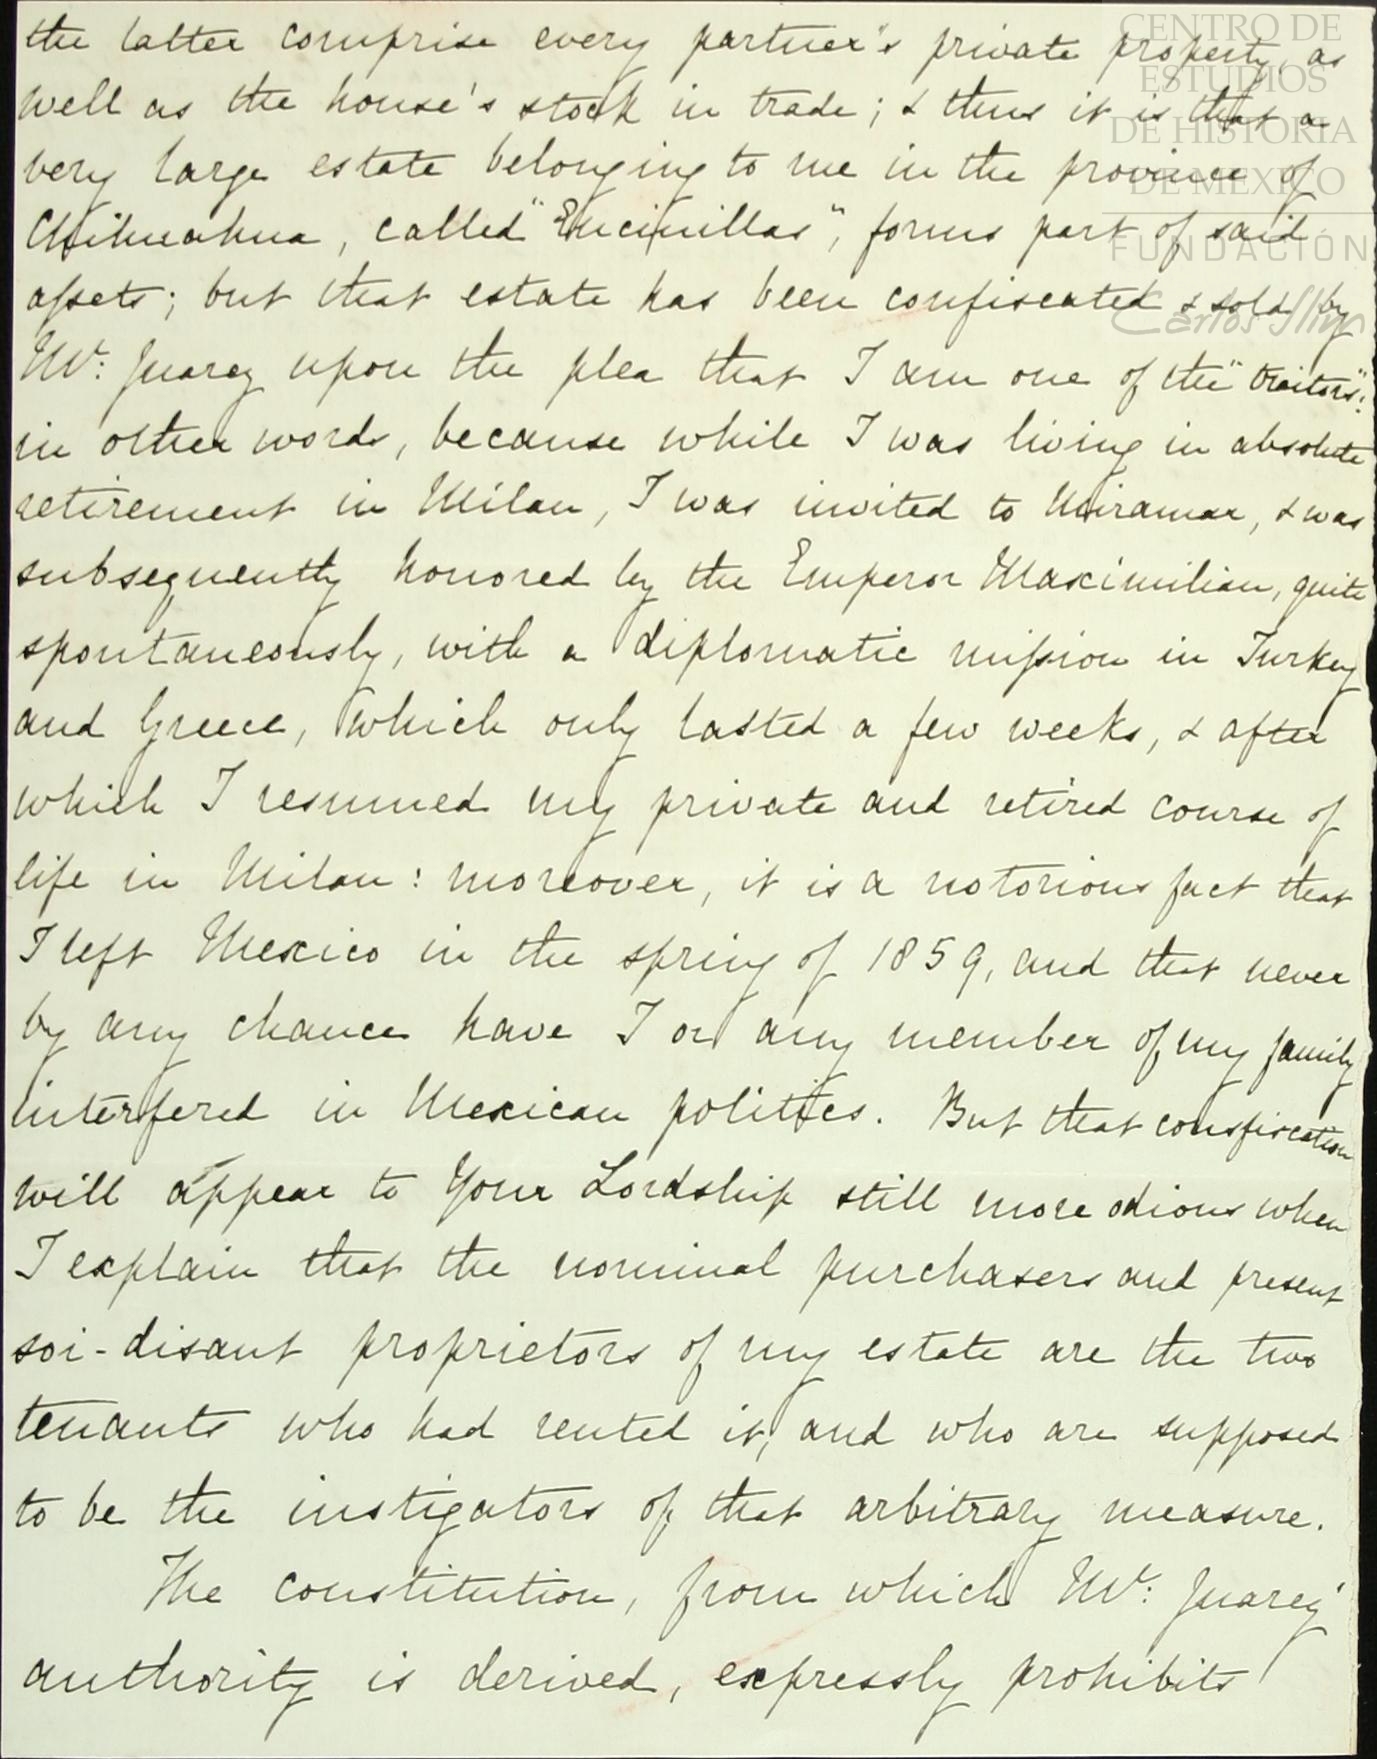 the latter comprise every partner's private property, as
well as the house's stock in trade; & thus it is that a
very large estate belonging to me in the province of
Chihuahua, called "Encinillas", forms part of said
assets; but that estate has been confiscated & sold by
Mr: Juarez upon the plea that I am one of the "traitors":
in other words, because while I was living in absolute
retirement in Milan, I was invited to Miramar, & was
subsequently honored by the Emperor Maximilian, quite
spontaneously, with a diplomatic mission in Turkey
and Greece, which only lasted a few weeks, & after
which I resumed my private and retired course of
life in Milan: moreover, it is a notorious fact that
I left Mexico in the spring of 1859, and that never
by any chance have I or any member of my family
interfered in Mexican politics. But that consfiscation
will appear to Your Lordship still more odious when
I explain that the nominal purchasers and present
soi-disant proprietors of my estate are the two
tenants who had rented it, and who are supposed
to be the instigators of that arbitrary measure.
The constitution, from which Mr: Juarez'
authority is derived, expressly prohibits
CENTRO DE
ESTUDIOS
DE HISTORIA
DE MEXICO
FUNDACIÓN
Carlos Slim